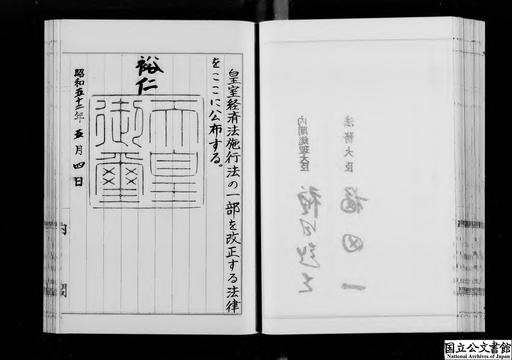 皇室経済法施行法の一部を改正する法律
をここに公布する。
裕仁
天皇
御璽
昭和五十二年五月四日
内閣
法務大臣 福田一
内閣総理大臣 福田赳夫
国立公文書館
National Archives of Japan